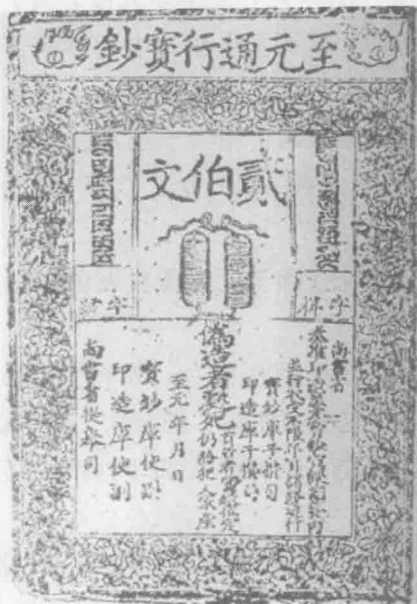 至元通行寶鈔
貳伯文
字料
字號
尚書省
奏准印造至元寶鈔宣課差役內
並行收受不限年月諸路通行
寶鈔庫子攢司
印造庫子攢司
偽造者處死
首告者賞銀伍定
仍給犯人家產
至元 年 月 日
寶鈔庫使副
印造庫使副
尚書省提舉司